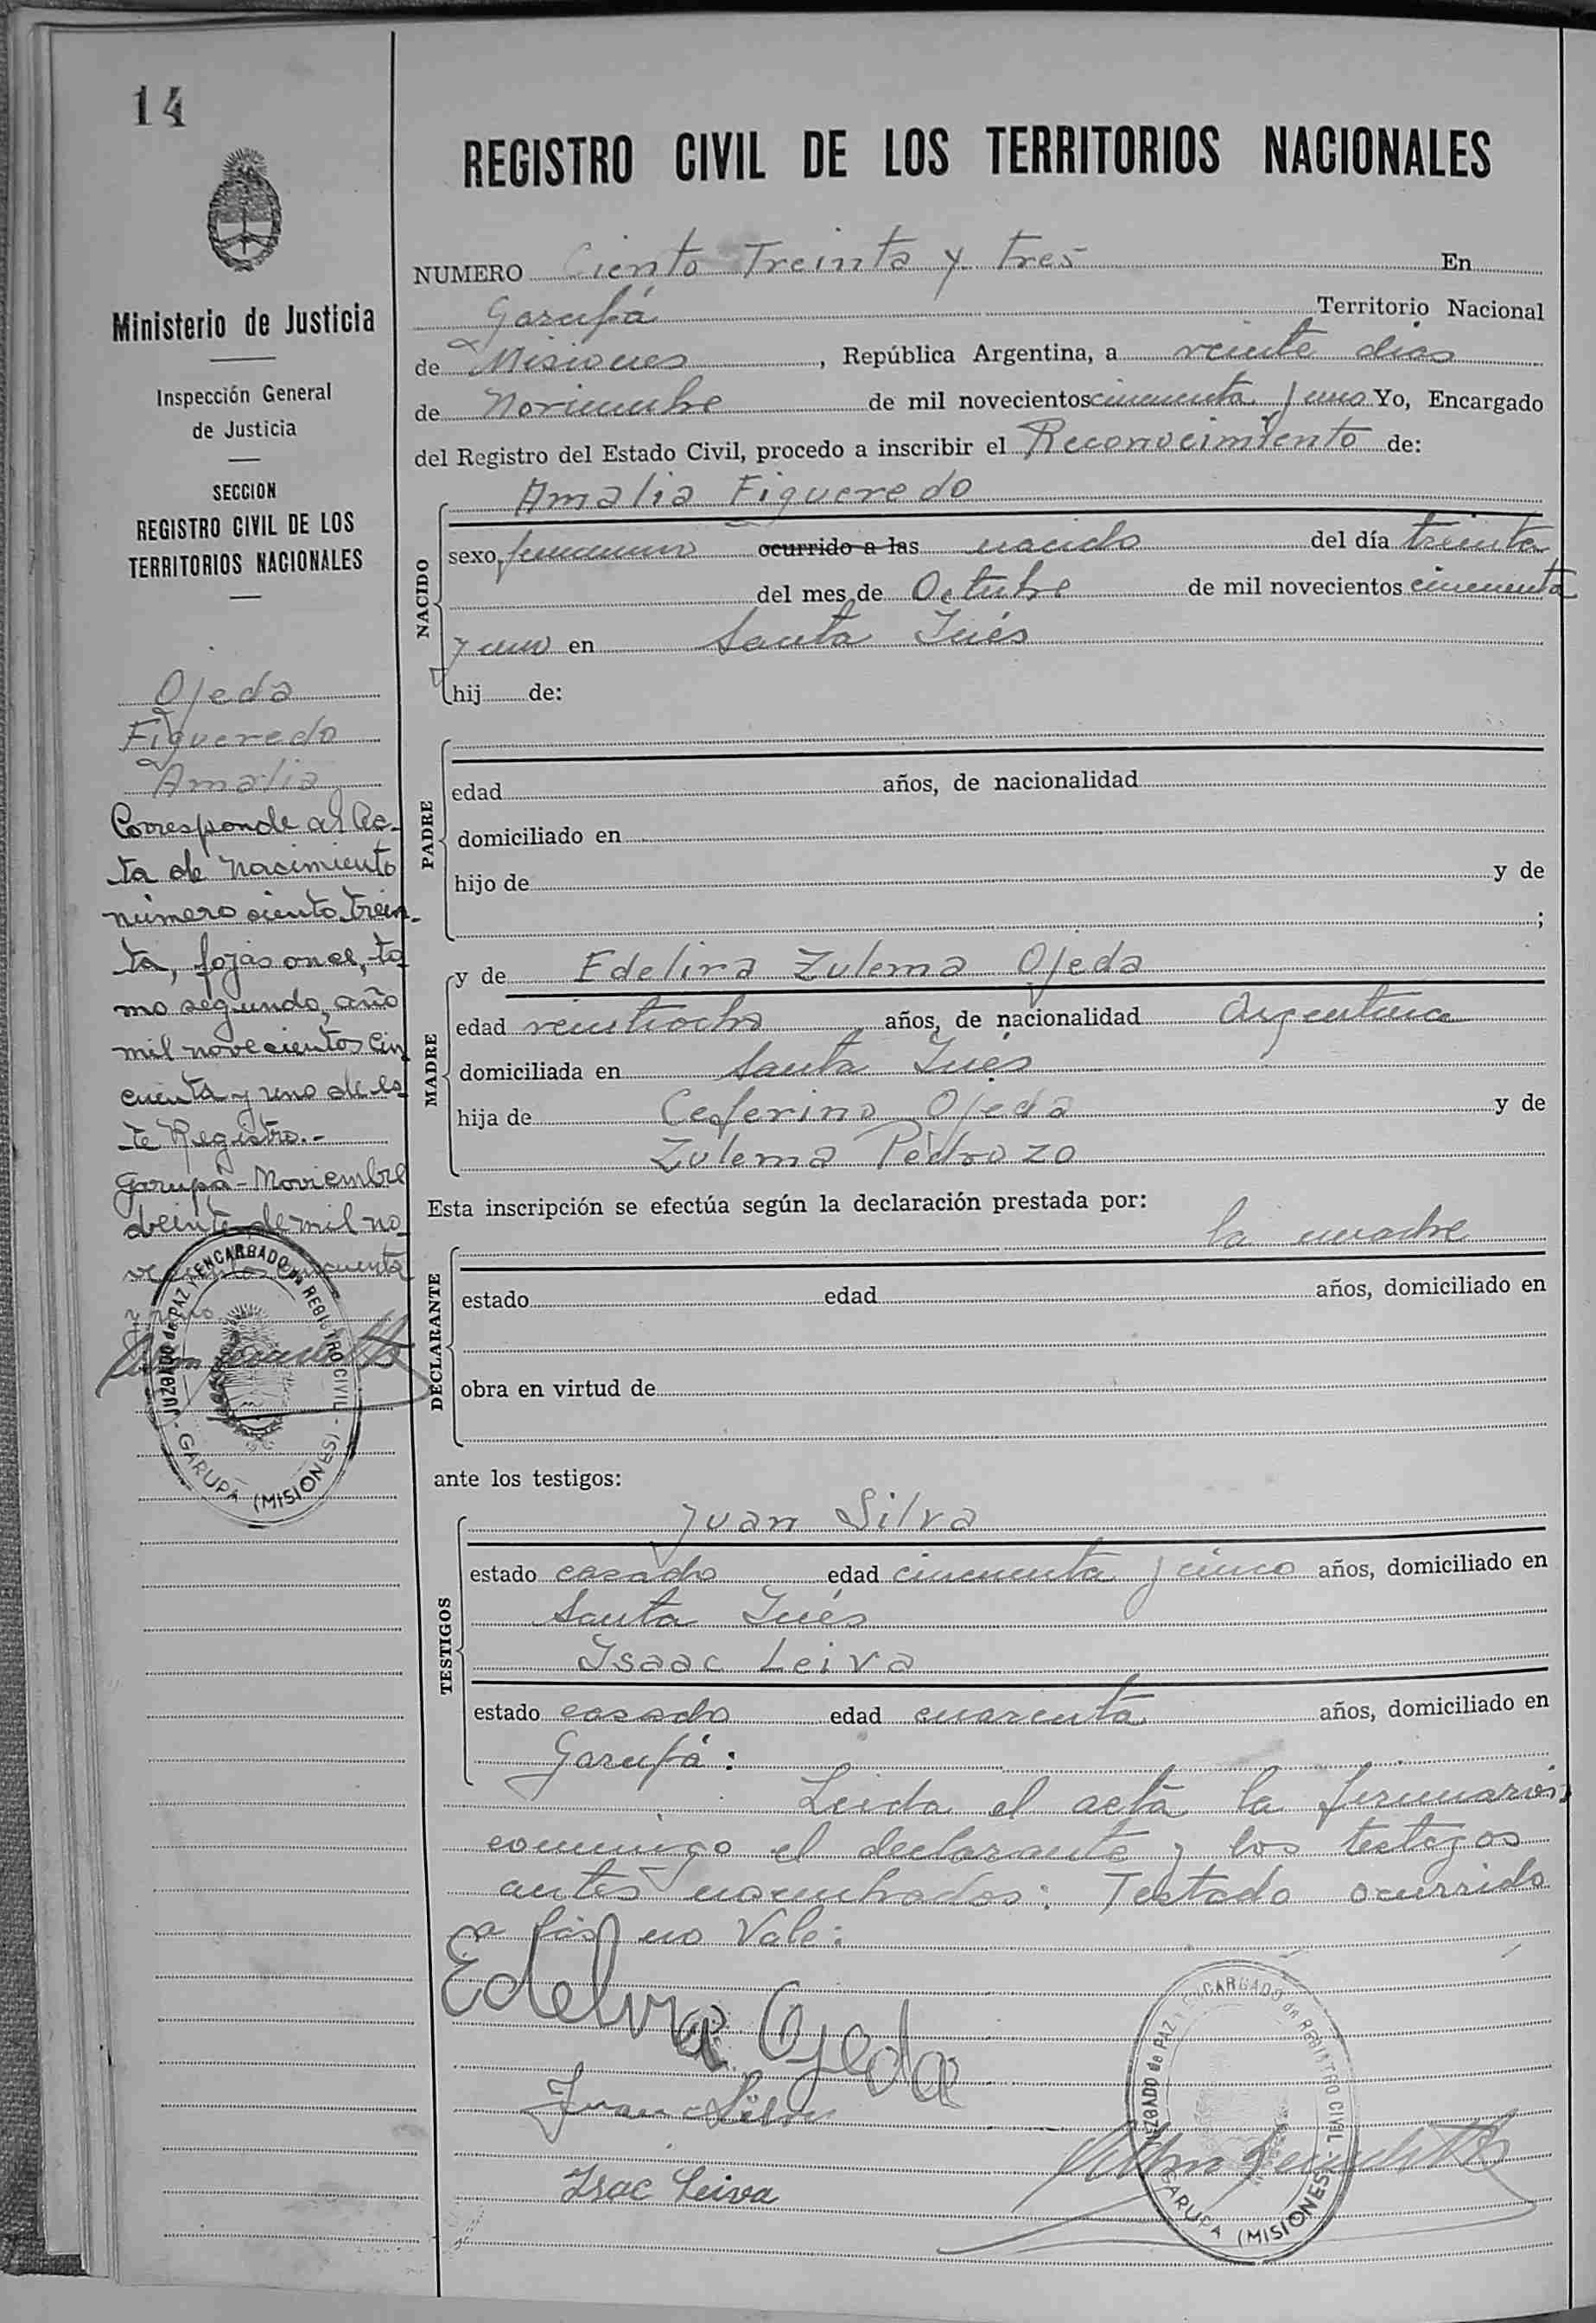 14
Ministerio de Justicia
Inspección General
de Justicia
SECCION
REGISTRO CIVIL DE LOS
TERRITORIOS NACIONALES
Ojeda
Figueredo
Amalia
Corresponde al Ac-
ta de Nacimiento
número ciento trein-
ta, fojas once, to
mo segundo, año
mil novecientos cin
cuenta y uno de es
te Registro.-
Garupá - Noviembre
veinte de mil no
vecientos cincuenta
y uno
JUZGADO de PAZ Y ENCARGADO de REGISTRO CIVIL - GARUPA (MISIONES)
REGISTRO CIVIL DE LOS TERRITORIOS NACIONALES
NUMERO Ciento Treinta y tres En
Garupá Territorio Nacional
de Misiones, República Argentina, a veinte dias
de Noviembre de mil novecientos cincuenta y uno Yo, Encargado
del Registro del Estado Civil, procedo a inscribir el Reconocimiento de:
NACIDO
Amalia Figueredo
sexo femenino ocurrido a las nacido del día treinta
del mes de Octubre de mil novecientos cincuenta
y uno en Santa Inés
hij de:
PADRE
edad años, de nacionalidad
domiciliado en
hijo de y de
;
MADRE
y de Edelira Zulema Ojeda
edad veintiocho años, de nacionalidad Argentina
domiciliada en Santa Inés
hija de Ceferino Ojeda y de
Zulema Pedrozo
Esta inscripción se efectúa según la declaración prestada por:
DECLARANTE
la madre
estado edad años, domiciliado en
obra en virtud de
ante los testigos:
TESTIGOS
Juan Silva
estado casado edad cincuenta y cinco años, domiciliado en
Santa Inés
Isaac Leiva
estado casado edad cuarenta años, domiciliado en
Garupá:
Leida el acta la firmaron
conmigo el declarante y los testigos
antes nombrados: Testado ocurrido
a las no Vale:
Edelvira Ojeda
Juan Silva
Isac Leiva
JUZGADO de PAZ Y ENCARGADO de REGISTRO CIVIL - GARUPA (MISIONES)